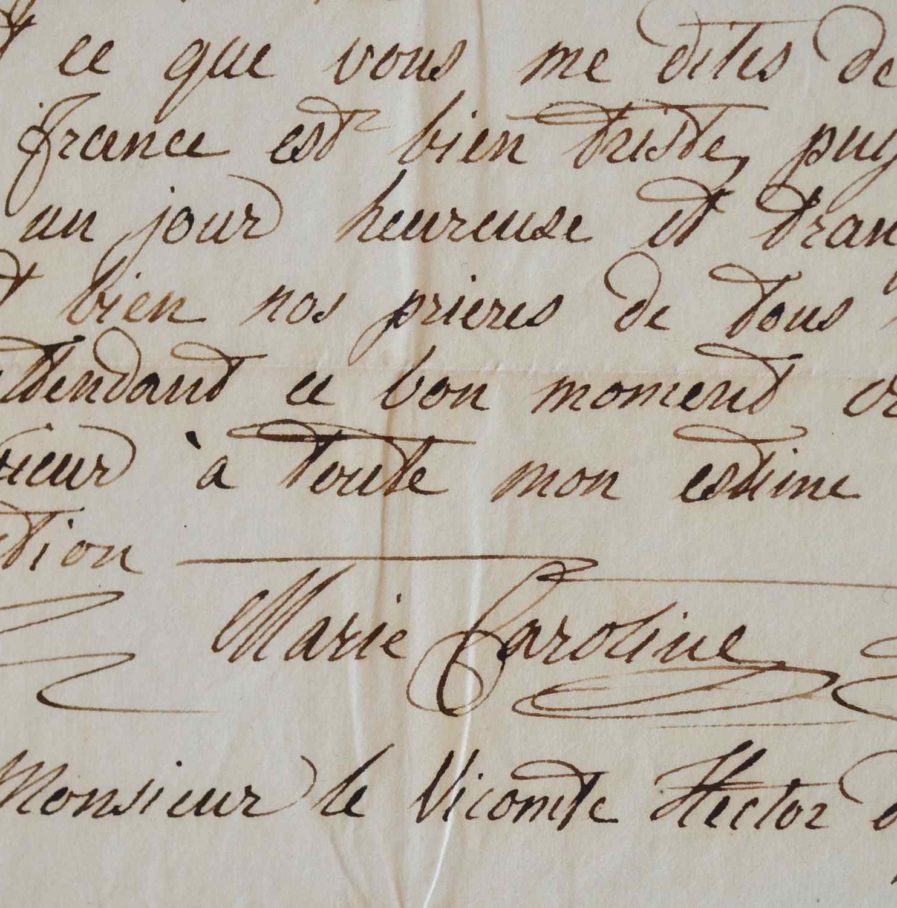 ce que vous me dites de
france est bien triste, puy
un jour heureuse et tran
bien nos prieres de tous
ttendant ce bon moment cr
sieur à toute mon estime
ction
Marie Caroline
Monsieur le Vicomte Hector d